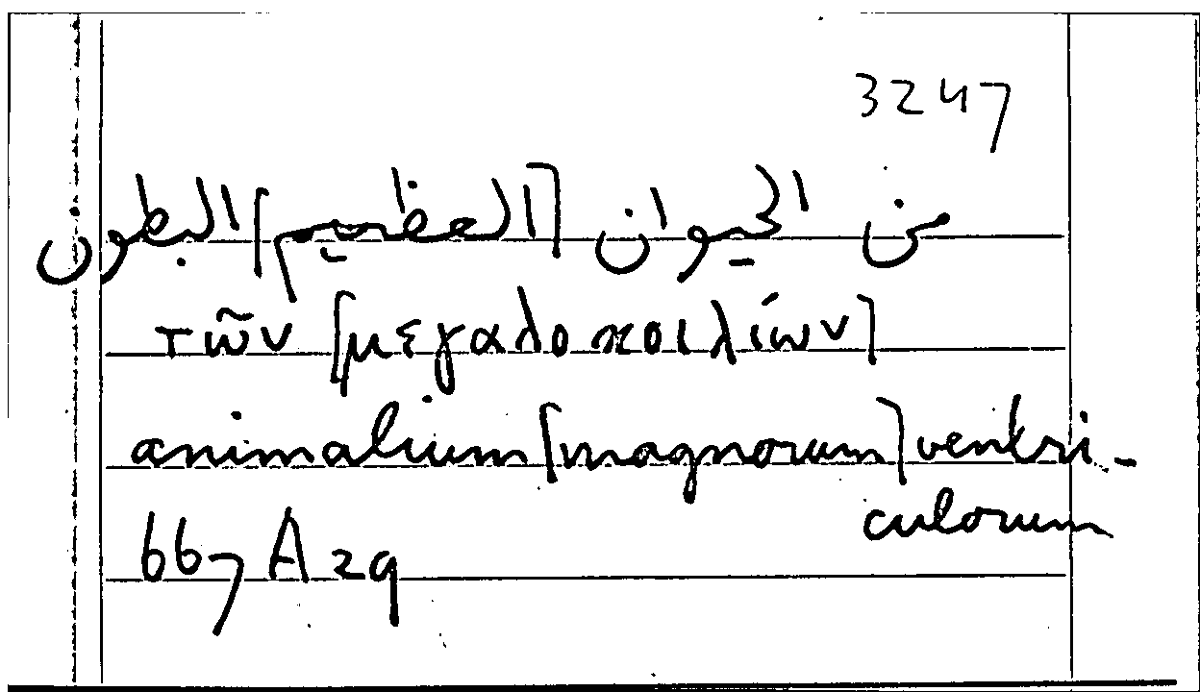 3247
من الحيوان [العظيم] البطون
τῶν [μεγαλοκοιλίων]
animalium [magnorum] ventri-
culorum
667 A 29